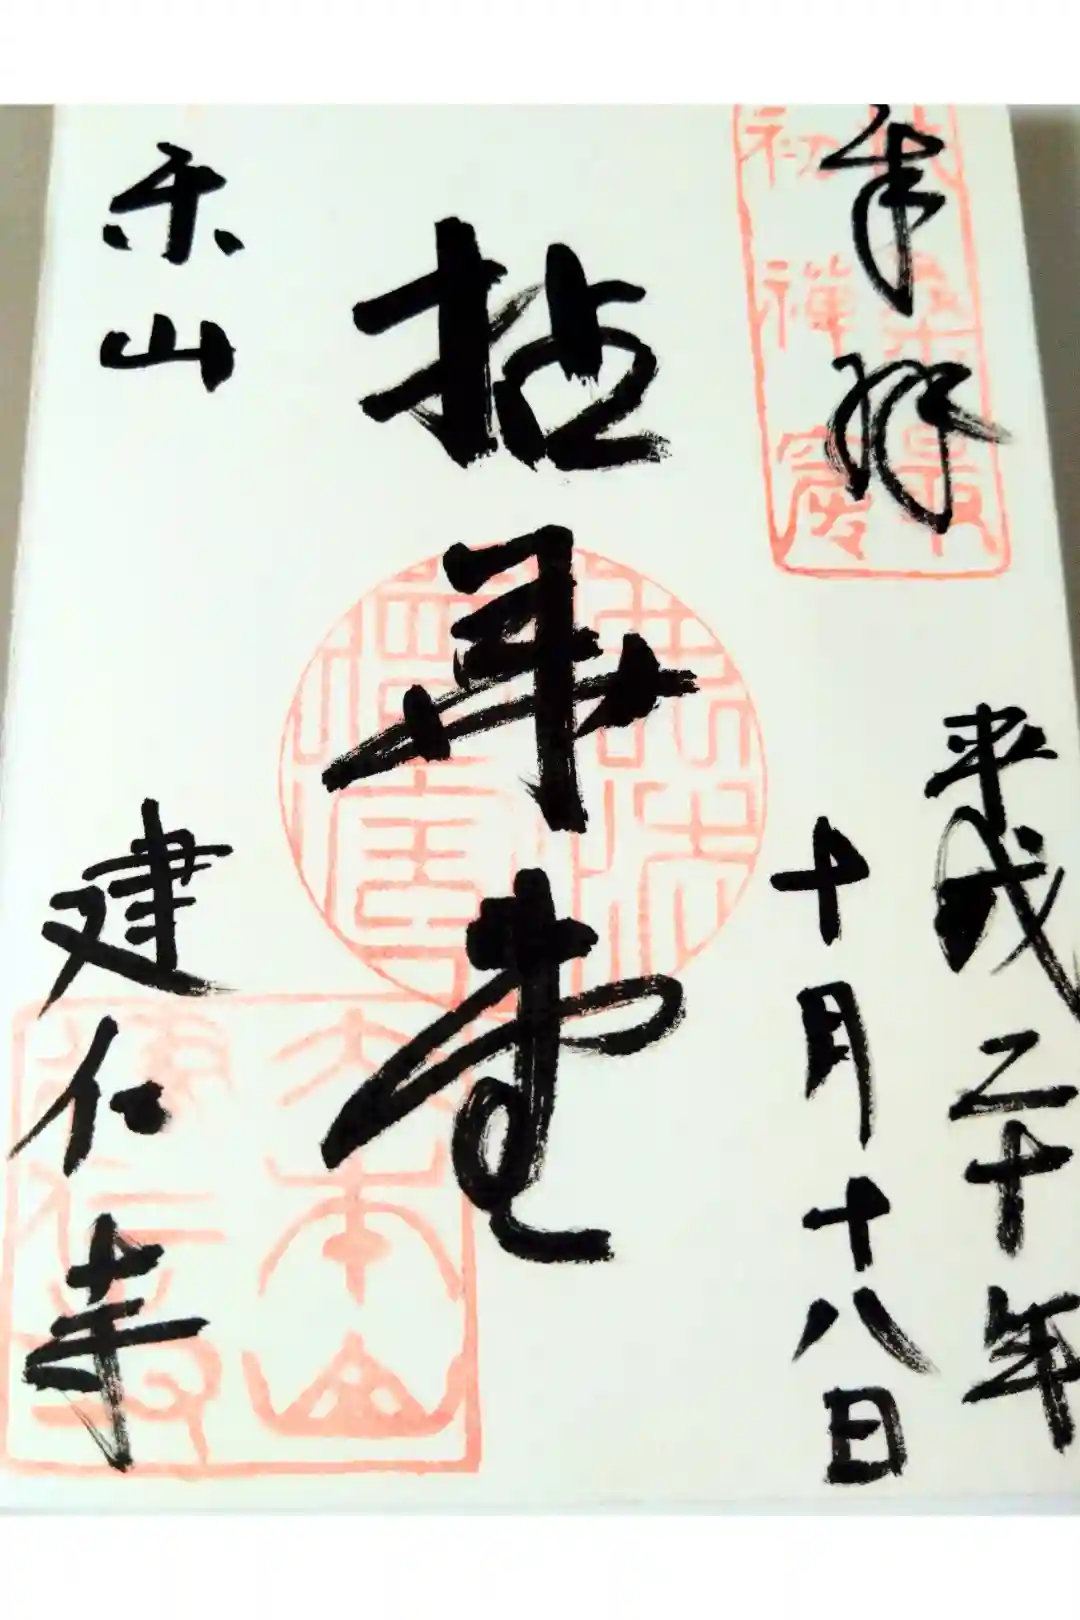 奉拝
平成二十年
十月十八日
拈華堂
東山
建仁寺